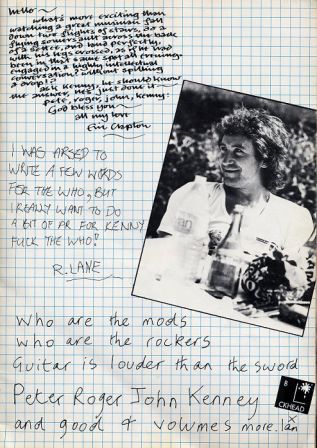 Hello ~
what's more exciting than
watching a great musician fall
down two flights of stairs, do a
flying somersault across the back
of a settee, and land perfectly,
with his legs crossed, as if he had
been in that same spot all evening,
engaged in a highly intellectual
conversation? without spilling
a drop!?
ask kenny, he should know
the answer, he's just done it ~
pete, roger, john, kenny:
God bless you ~
all my love
Eric Clapton
I WAS ARSED TO
WRITE A FEW WORDS
FOR THE WHO, BUT
I REALLY WANT TO DO
A BIT OF PR FOR KENNY
FUCK THE WHO!
R. LANE
Who are the mods
who are the rockers
Guitar is louder than the sword
Peter Roger John Kenney
and good 4 volumes more. Ian
B
CKHEAD